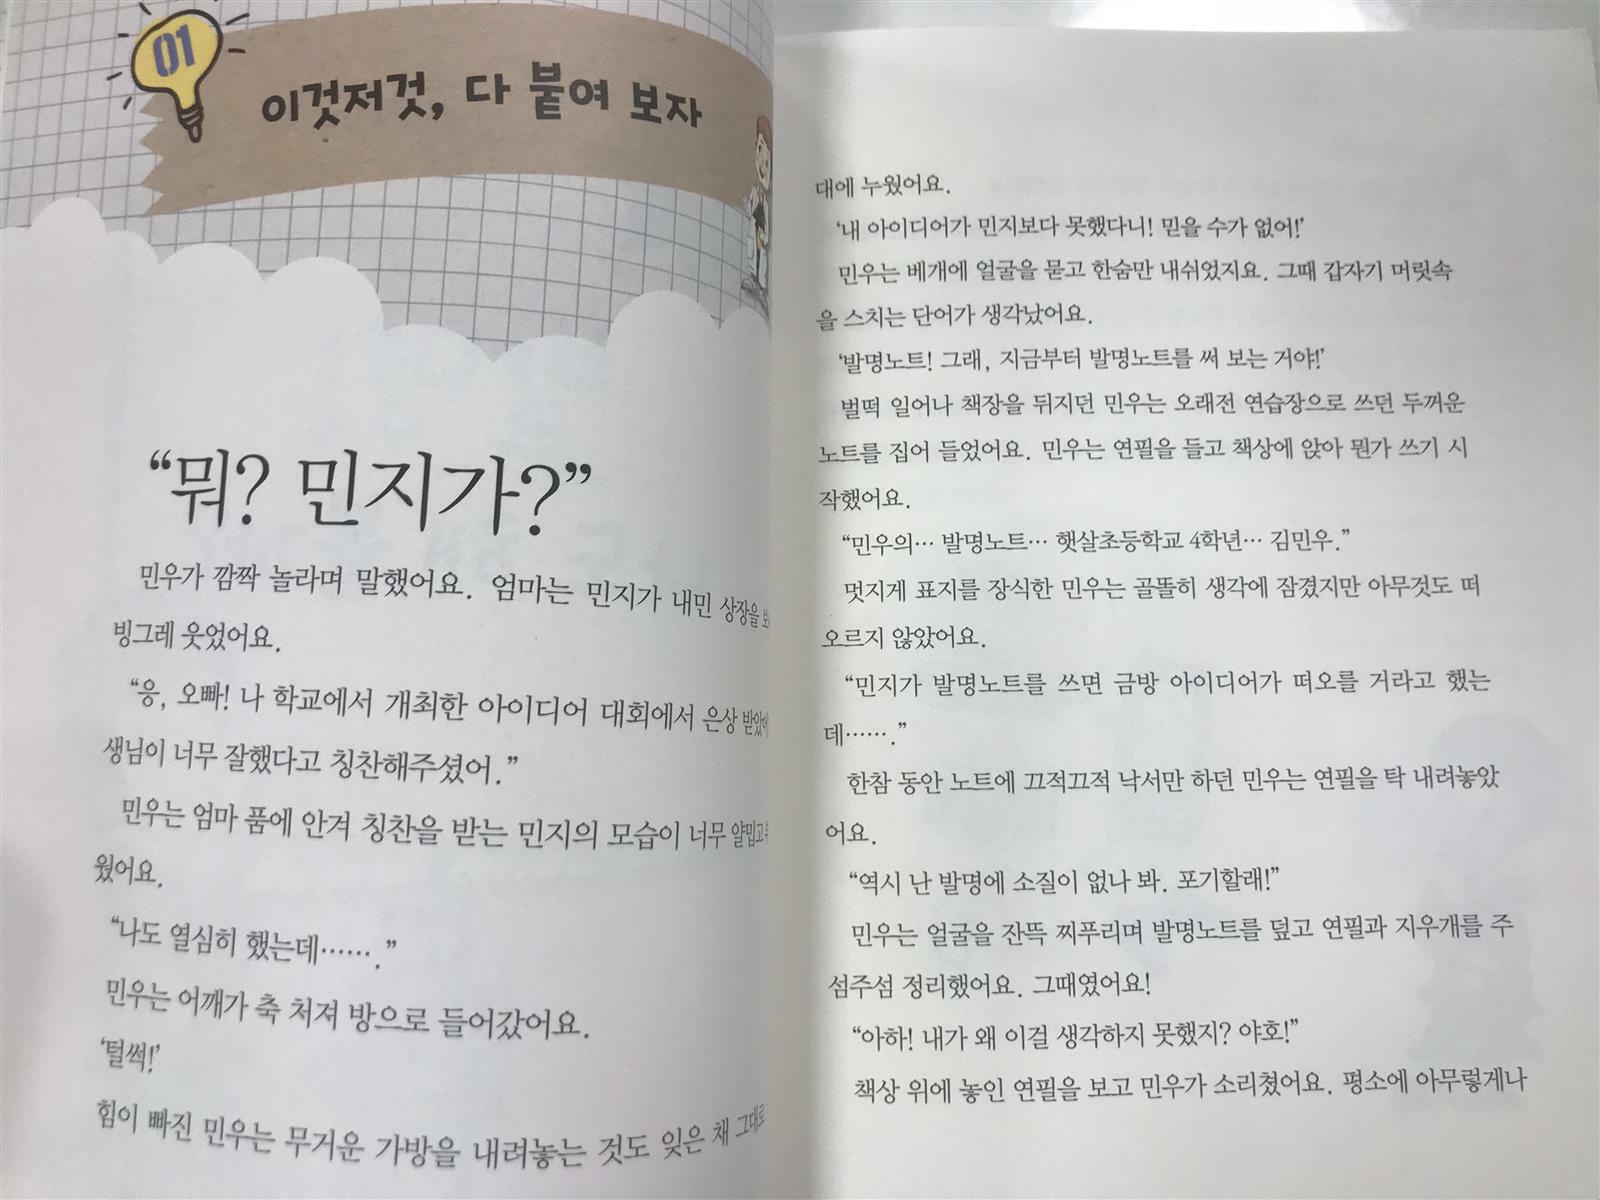 01
이것저것, 다 붙여 보자
“뭐? 민지가?”
민우가 깜짝 놀라며 말했어요. 엄마는 민지가 내민 상장을
빙그레 웃었어요.
“응, 오빠! 나 학교에서 개최한 아이디어 대회에서 은상
생님이 너무 잘했다고 칭찬해주셨어.”
민우는 엄마 품에 안겨 칭찬을 받는 민지의 모습이 너무 얄밉고
웠어요.
“나도 열심히 했는데…….”
민우는 어깨가 축 처져 방으로 들어갔어요.
‘털썩!’
힘이 빠진 민우는 무거운 가방을 내려놓는 것도 잊은 채 그대로
대에 누웠어요.
‘내 아이디어가 민지보다 못했다니! 믿을 수가 없어!’
민우는 베개에 얼굴을 묻고 한숨만 내쉬었지요. 그때 갑자기 머릿속
을 스치는 단어가 생각났어요.
‘발명노트! 그래, 지금부터 발명노트를 써 보는 거야!’
벌떡 일어나 책장을 뒤지던 민우는 오래전 연습장으로 쓰던 두꺼운
노트를 집어 들었어요. 민우는 연필을 들고 책상에 앉아 뭔가 쓰기 시
작했어요.
“민우의… 발명노트… 햇살초등학교 4학년… 김민우.”
멋지게 표지를 장식한 민우는 골똘히 생각에 잠겼지만 아무것도 떠
오르지 않았어요.
“민지가 발명노트를 쓰면 금방 아이디어가 떠오를 거라고 했는
데…….”
한참 동안 노트에 끄적끄적 낙서만 하던 민우는 연필을 탁 내려놓았
어요.
“역시 난 발명에 소질이 없나 봐. 포기할래!”
민우는 얼굴을 잔뜩 찌푸리며 발명노트를 덮고 연필과 지우개를 주
섬주섬 정리했어요. 그때였어요!
“아하! 내가 왜 이걸 생각하지 못했지? 야호!”
책상 위에 놓인 연필을 보고 민우가 소리쳤어요. 평소에 아무렇게나